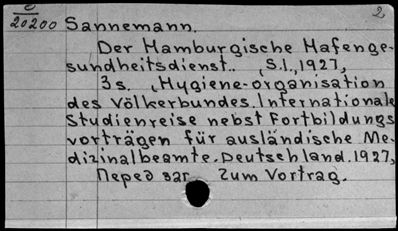 e
20200 Sannemann. 2
Der Hamburgische Hafenge-
sundheitsdienst.. (S.l., 1927,
3 s. (Hygiene-organisation
des Völkerbundes. Internationale
Studienreise nebst Fortbildungs
vorträgen für ausländische Me-
dizinalbeamte. Deutschland. 1927,
Перед заг. Zum Vortrag.